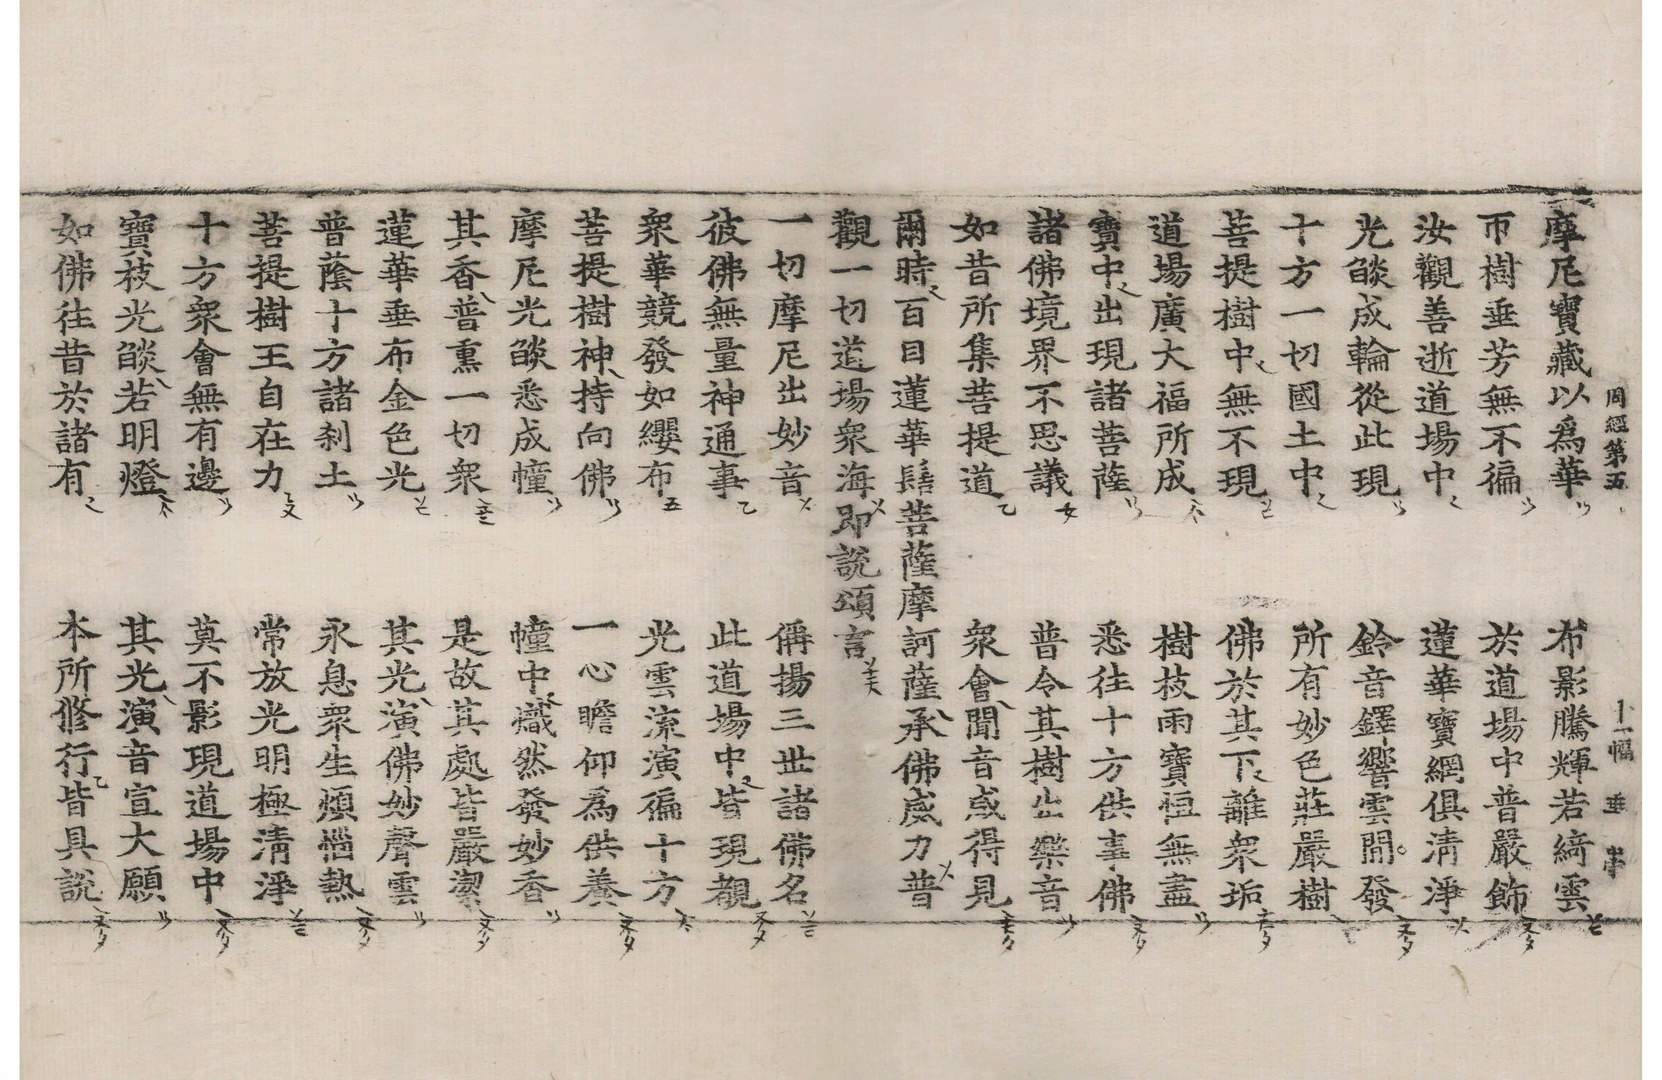 周經第五　十一幅　垂
摩尼寶藏以爲華　布影騰輝若綺雲
帀樹垂芳無不徧　於道場中普嚴飾
汝觀善逝道場中　蓮華寶網俱清淨
光燄成輪從此現　鈴音鐸響雲閒發
十方一切國土中　所有妙色莊嚴樹
菩提樹中無不現　佛於其下離衆垢
道場廣大福所成　樹枝雨寶恒無盡
寶中出現諸菩薩　悉往十方供事佛
諸佛境界不思議　普令其樹出樂音
如昔所集菩提道　衆會聞音咸得見
爾時百目蓮華髻菩薩摩訶薩承佛威力普
觀一切道場衆海即說頌言
一切摩尼出妙音　稱揚三世諸佛名
彼佛無量神通事　此道場中皆現覩
衆華競發如纓布　光雲流演徧十方
菩提樹神持向佛　一心瞻仰爲供養
摩尼光燄悉成幢　幢中熾然發妙香
其香普熏一切衆　是故其處皆嚴潔
蓮華垂布金色光　其光演佛妙聲雲
普蔭十方諸刹土　永息衆生煩惱熱
菩提樹王自在力　常放光明極清淨
十方衆會無有邊　莫不影現道場中
寶枝光燄若明燈　其光演音宣大願
如佛往昔於諸有　本所修行皆具說